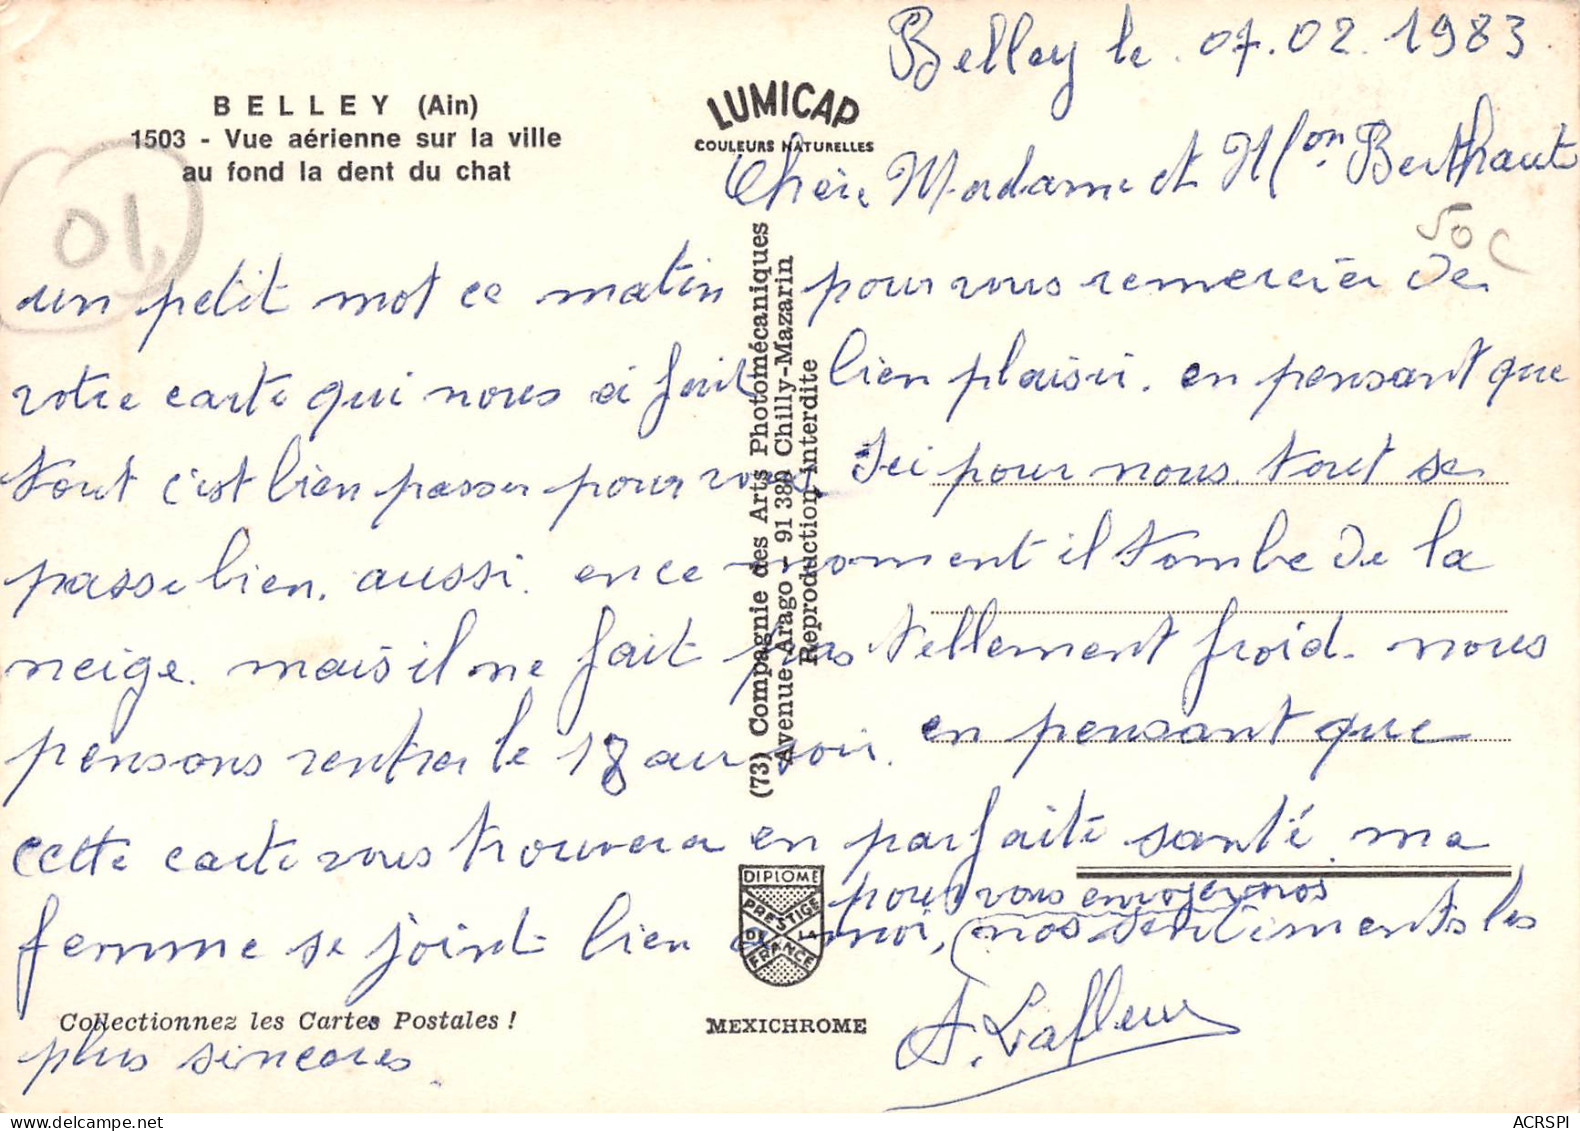 Belley le . 07.02.1983
BELLEY (Ain)
1503 - Vue aérienne sur la ville
au fond la dent du chat
LUMICAP
COULEURS NATURELLES
01
50c
Chère Madame et Mon Berthaut
un petit mot ce matin pour vous remercier de
votre carte qui nous a fait bien plaisir. en pensant que
tout c'est bien passer pour vous. Ici pour nous tout se
passe bien. aussi. en ce moment il tombe de la
neige. mais il ne fait pas tellement froid. nous
pensons rentrer le 18 au soir. en pensant que
cette carte vous trouvera en parfaite santé. ma
pour vous envoyer nos
femme se joint bien a moi, nos sentiments les
plus sinceres.
A. Lafleur
(73) Compagnie des Arts Photomécaniques
Avenue Arago - 91 380 Chilly-Mazarin
Reproduction interdite
DIPLOME
PRESTIGE
DE LA
FRANCE
Collectionnez les Cartes Postales !
MEXICHROME
ACRSPI
www.delcampe.net